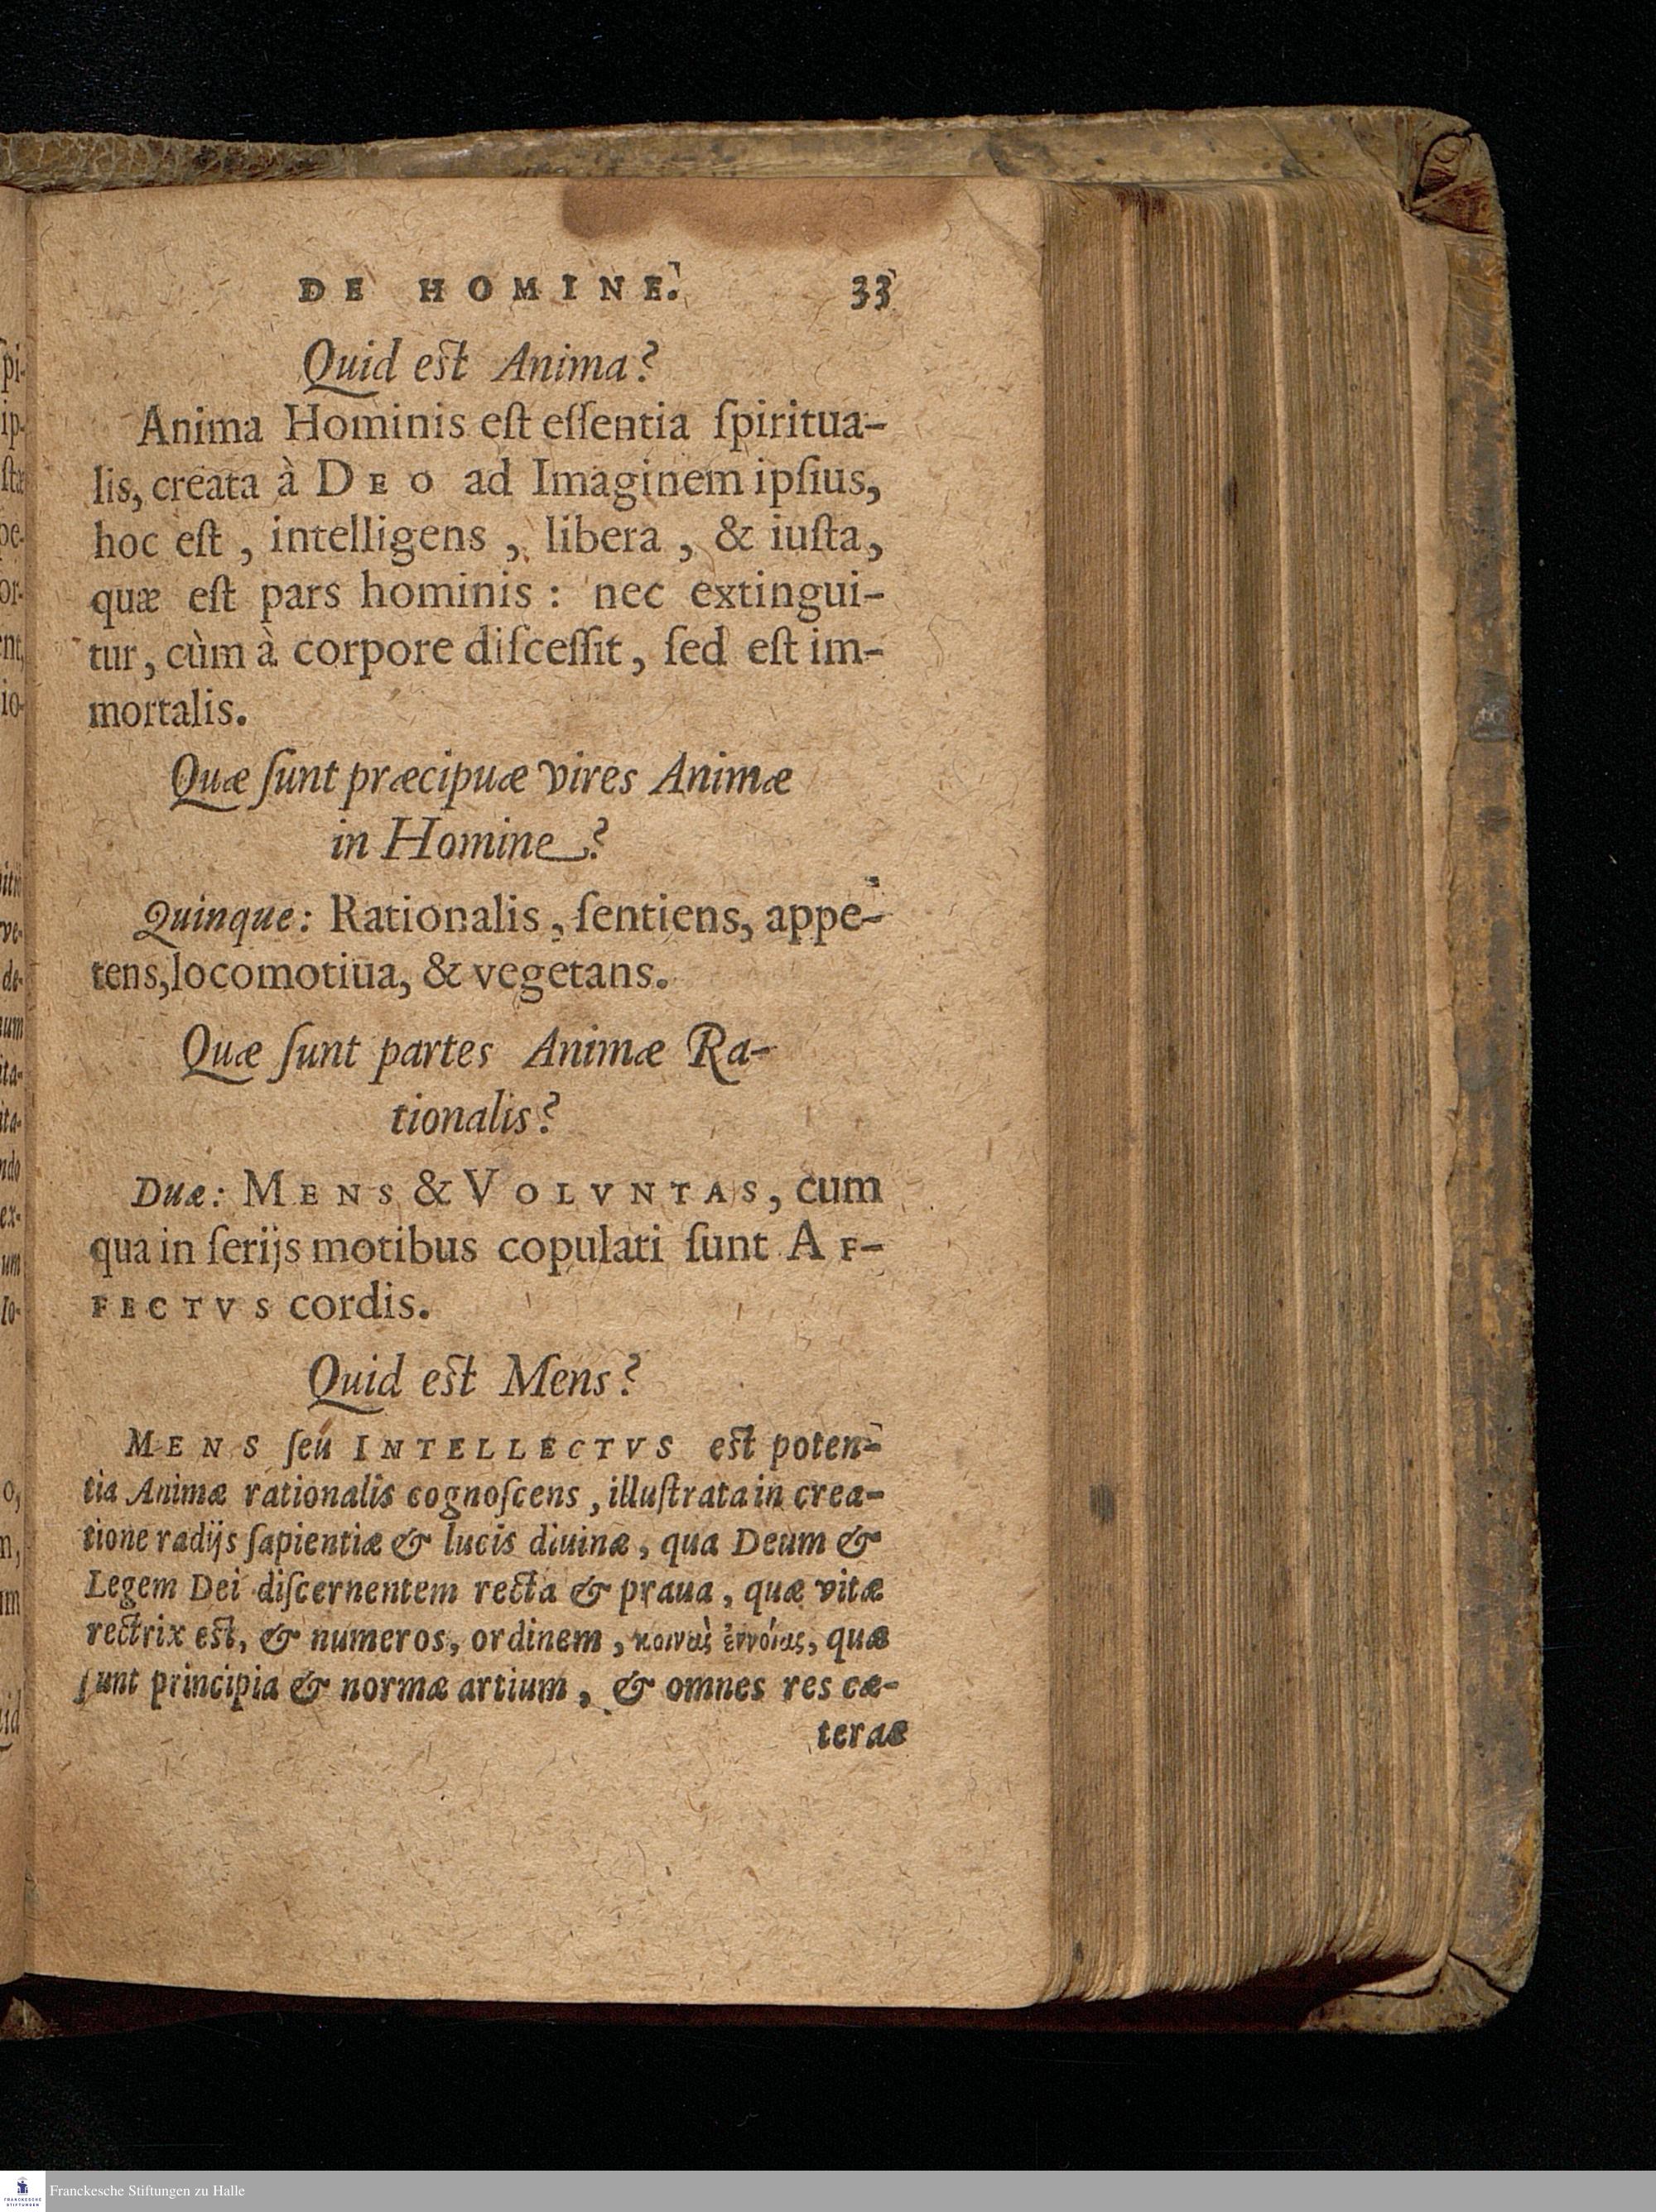 DE HOMINE. 33
Quid est Anima?
Anima Hominis eſt eſſentia ſpiritua-
lis, creata à DEO ad Imaginem ipſius,
hoc eſt, intelligens, libera, & iuſta,
quæ eſt pars hominis: nec extingui-
tur, cùm à corpore diſceſſit, ſed eſt im-
mortalis.
Quæ ſunt præcipuæ vires Animæ
in Homine?
Quinque: Rationalis, ſentiens, appe-
tens, locomotiua, & vegetans.
Quæ ſunt partes Animæ Ra-
tionalis?
Duæ: MENS & VOLVNTAS, cum
qua in ſerijs motibus copulati ſunt AF-
FECTVS cordis.
Quid est Mens?
MENS ſeu INTELLECTVS est poten-
tia Animæ rationalis cognoſcens, illuſtrata in crea-
tione radijs ſapientiæ & lucis diuinæ, qua Deum &
Legem Dei diſcernentem recta & praua, quæ vitæ
rectrix est, & numeros, ordinem, κοινὰς ἐννοίας, quæ
ſunt principia & normæ artium, & omnes res cæ-
teræ
pi-
ip-
ſtæ
or-
nt,
io-
ve-
de-
um
ita-
ita-
ndo
ex-
um
lo-
o,
n,
um
id
Franckesche Stiftungen zu Halle
FRANCKESCHE
STIFTUNGEN